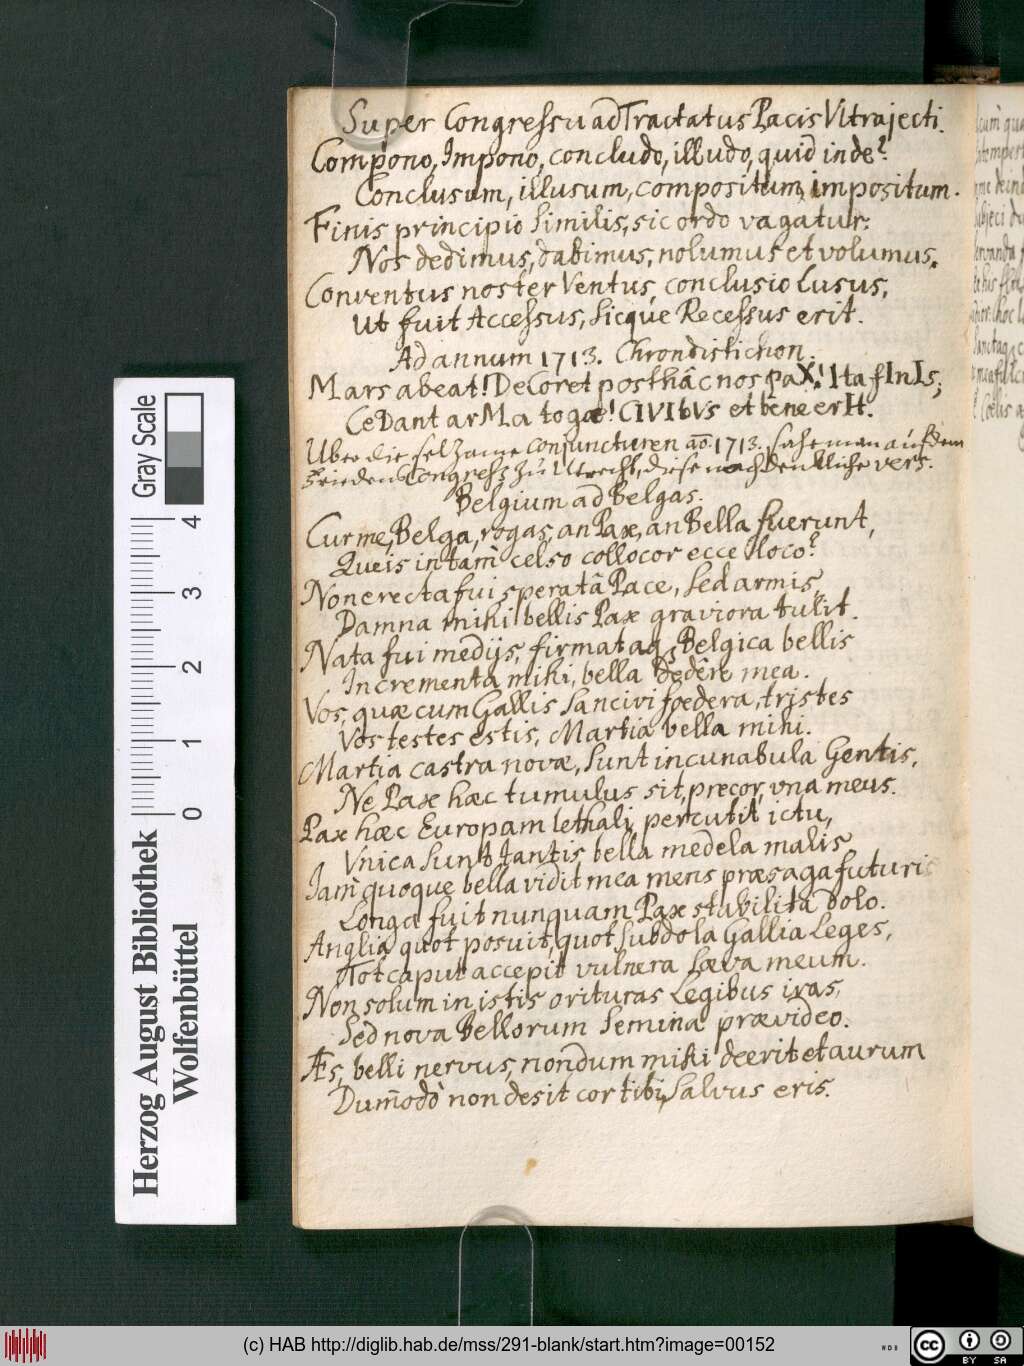 Super Congressu ad Tractatus Pacis Vltrajecti.
Compono, Impono, concludo, illudo, quid inde?
Conclusum, illusum, compositum, impositum.
Finis principio similis, sic ordo vagatur:
Nos dedimus, dabimus, nolumus et volumus.
Conventus noster Ventus, conclusio Lusus,
Ut fuit Accessus, sicque Recessus erit.
Ad annum 1713. Chrondistichon.
Mars abeat! DeCoret posthâc nos paX! Ita fInIs,
CeDant arMa togæ! CIVIbVs et bene erIt.
Uber die selzame conjuncturen ao. 1713. sahe man auf dem
Friedens Congress zu Utrecht, diese nachdenkliche vers.
Belgium ad Belgas.
Cur me, Belga, rogas, an Pax, an Bella fuerunt,
Queis in tam celso collocor ecce loco?
Non erecta fui speratâ Pace, sed armis,
Damna mihi bellis Pax graviora tulit.
Nata fui medijs, firmataq; Belgica bellis
Incrementa mihi, bella dedêre mea.
Vos, quæ cum Gallis sancivi foedera, tristes
Vos testes estis, Martia bella mihi.
Martia castra novæ, sunt incunabula Gentis,
Ne Pax hæc tumulus sit, precor, vna meus.
Pax hæc Europam lethali percutit ictu,
Vnica sunt tantis bella medela malis
Jam quoque bella vidit mea mens præsaga futuris
Longa fuit nunquam Pax stabilita dolo.
Anglia quot posuit, quot subdola Gallia Leges,
Tot caput accepit vulnera sæva meum.
Non solum in istis orituras Legibus iras,
Sed nova Bellorum semina prævideo.
Æs, belli nervus, nondum mihi deerit et aurum
Dum̄odò non desit cor tibi, salvus eris.
Gray Scale
0 1 2 3 4
Herzog August Bibliothek
Wolfenbüttel
(c) HAB http://diglib.hab.de/mss/291-blank/start.htm?image=00152
WDB
cc BY SA